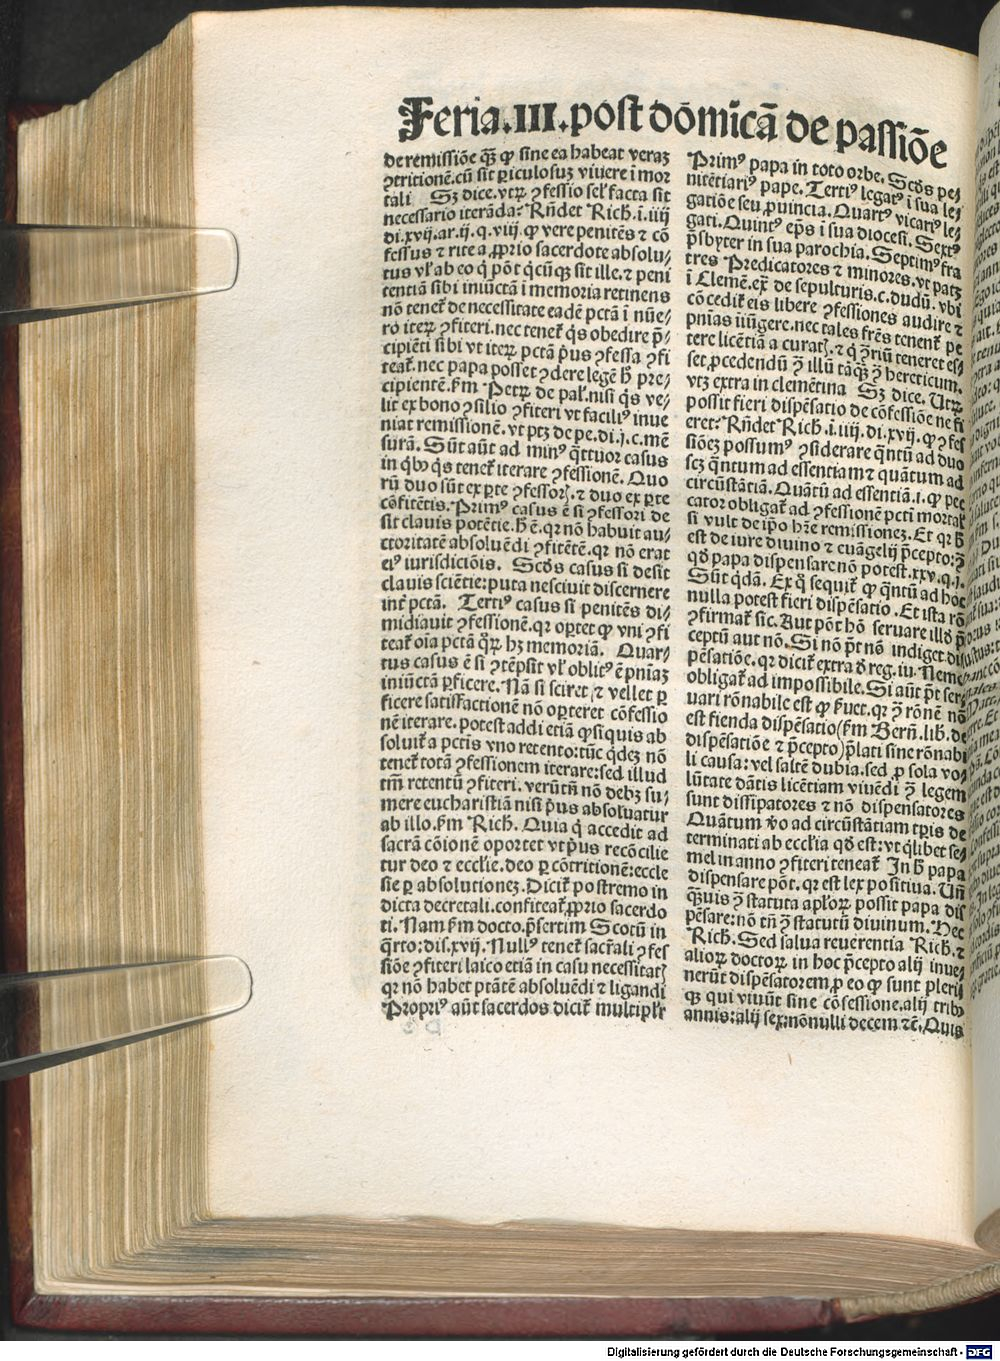 Feria.III.post dōmicā de passiōe
de remissiōe qꝫ ꝙ sine ea habeat veraꝫ
ꝯtritionē.cū sit ꝑiculosuꝫ viuere ī mor
tali Sꝫ dice.vtꝝ ꝯfessio sel̕ facta sit
necessario iterāda? Rn̄det Rich.i.iiij
di.xvij.ar.ij.q.viij.ꝙ vere penitēs ⁊ cō
fessus ⁊ rite a ꝓprio sacerdote absolu/
tus vl̕ ab eo q̇ pōt q̇cūqꝫ sit ille.⁊ peni
tentiā sibi iniūctā ī memoria retinens
nō tenet̄ de necessitate eadē pctā ī nūe/
ro iteꝝ ꝯfiteri.nec tenet̄ q̇s obedire p̄/
cipiēti sibi vt iteꝝ pctā p̄us ꝯfessa ꝯfi
teat̄.nec papa posset ꝯdere legē h̄ pre/
cipientē.ẜm Petꝝ de pal̕.nisi q̇s ve/
lit ex bono ꝯsilio ꝯfiteri vt facili⁹ inue
niat remissionē.vt ptꝫ de pe.di.j.c.mē
surā. Sūt aūt ad min⁹ q̄ttuor casus
in q̇bꝰ q̇s tenet̄ iterare ꝯfessionē. Quo
rū duo sūt ex ꝑte ꝯfessorꝭ.⁊ duo ex ꝑte
cōfitētis.Prim⁹ casus ē si ꝯfessori de
sit clauis potētie.h̄ ē.qꝛ nō habuit au/
ctoritatē absoluēdi ꝯfitētē.qꝛ nō erat
ei⁹ iurisdiciōis. Scd̄s casus si desit
clauis sciētie:puta nesciuit discernere
int̄ pctā. Terti⁹ casus si penitēs di/
midiauit ꝯfessionē.qꝛ oꝑtet ꝙ vni ꝯfi
teat̄ oīa pctā q̊ꝝ hꝫ memoriā. Quar/
tus casus ē si ꝯtēpsit vl̕ oblit⁹ ē pn̄iaꝫ
iniūctā ꝑficere. Nā si sciret ⁊ vellet ꝑ
ficere satisfactionē nō oꝑteret cōfessio
nē iterare.potest addi etiā ꝙ si quis ab
soluit̄ a pctis vno retento:tūc q̇deꝫ nō
tenet̄ totā ꝯfessionem iterare:sed illud
tm̄ retentū ꝯfiteri.verūtn̄ nō debꝫ su/
mere eucharistiā nisi p̄us absoluatur
ab illo.ẜm Rich. Quia q̇ accedit ad
sacrā cōionē oportet vt p̄us recōcilie
tur deo ⁊ eccl̕ie.deo ꝑ cōtritionē:eccle
sie ꝑ absolutioneꝫ.Dicit̄ postremo in
dicta decretali.confiteat̄ ꝓprio sacerdo
ti. Nam ẜm docto.p̄sertim Scotū in
q̄rto:dis.xvij. Null⁹ tenet̄ sacr̄ali ꝯfes
siōe ꝯfiteri laico etiā in casu necessitatꝭ
qꝛ nō habet ptātē absoluēdi ⁊ ligandi
Propri⁹ aūt sacerdos dicit̄ multipl̕r
Prim⁹ papa in toto orbe. Scd̄s pe/
nitētiari⁹ pape. Terti⁹ legat⁹ ī sua le/
gatiōe seu ꝓuincia. Quart⁹ vicari⁹ le/
gati. Quint⁹ ep̄s ī sua diocesi. Sext⁹
p̄sbyter in sua parochia. Septim⁹ fra
tres Predicatores ⁊ minores.vt patꝫ
ī Clemē.ex̄ de sepulturis.c.dudū.vbi
cōcedit̄ eis libere ꝯfessiones audire ⁊
pn̄ias iniūgere.nec tales fr̄es tenent̄ pe
tere licētiā a curatꝭ.⁊ q̇ ꝯ̄riū teneret es/
set ꝓcedendū ꝯ̄ illū tāqꝫ ꝯ̄ hereticum.
vtꝫ extra in clemētina Sꝫ dice. Utꝝ
possit fieri dispēsatio de cōfessiōe ne fi
eret? Rn̄det Rich.i.iiij.di.xvij.ꝙ ꝯfes
siōeꝫ possum⁹ ꝯsiderare q̄ntū ad duo
scꝫ q̄ntum ad essentiam ⁊ quātum ad
circūstātiā. Quātū ad essentiā.i.ꝙ pec
cator obligat̄ ad ꝯfessionē pcti mortal̕
si vult de ip̄o hr̄e remissioneꝫ. Et qꝛ h̄
est de iure diuino ⁊ euāgelij p̄cepto:ꝯ̄
qd̄ papa dispensare nō potest.xxv.q.j.
Sūt q̇dā. Ex q̊ sequit̄ ꝙ q̄ntū ad hoc
nulla potest fieri dispēsatio. Et ista rō
ꝯfirmat̄ sic. Aut pōt hō seruare illd̄ p̄
ceptū aut nō. Si nō pōt nō indiget dis
pēsatiōe.qꝛ dicit̄ extra d̄ reg.iu. Nemo
obligat̄ ad impossibile. Si aūt pōt ser/
uari rōnabile est ꝙ ẜuet.qꝛ ꝯ̄ rōnē nō
est fienda dispēsatio(ẜm Bern̄.lib.de
dispēsatiōe ⁊ p̄cepto)p̄lati sine rōnabi
li causa:vel saltē dubia.sed ꝓ sola vo/
lūtate dātis licētiam viuēdi ꝯ̄ legem
sunt dissipatores ⁊ nō dispensatores
Quātum v̊o ad circūstātiam tp̄is de
terminati ab eccl̕ia qd̄ est:vt q̇libet se/
mel in anno ꝯfiteri teneat̄ In h̄ papa
dispensare pōt.qꝛ est lex positiua. Un̄
qꝫuis ꝯ̄ statuta apl̕oꝝ possit papa dis
pēsare:nō tn̄ ꝯ̄ statutū diuinum. Hec
Rich. Sed salua reuerentia Rich.⁊
alioꝝ doctoꝝ in hoc p̄cepto alij inue/
nerūt dispēsatorem ꝓ eo ꝙ sunt pleri
qꝫ qui viuūt sine cōfessione.alij tribꝰ
annis:alij sex:nōnulli decem ⁊c̄. Quis
Digitalisierung gefördert durch die Deutsche Forschungsgemeinschaft - DFG